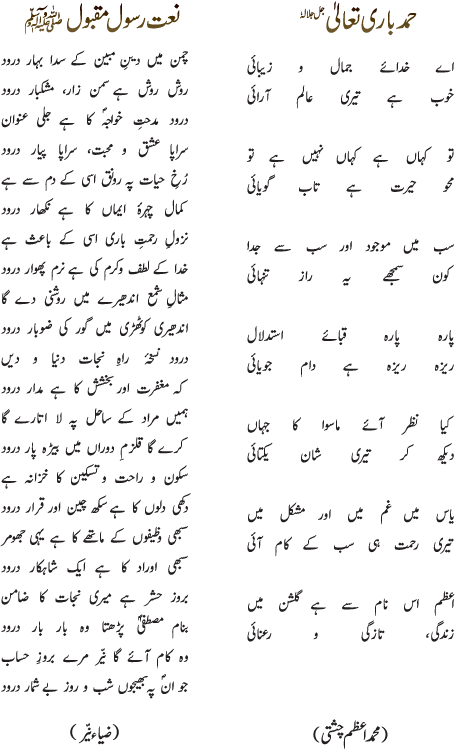 حمد باری تعالیٰ جل جلالہٗ
اے خدائے جمال و زیبائی
خوب ہے تیری عالم آرائی
تو کہاں ہے کہاں نہیں ہے تو
محو حیرت ہے تاب گویائی
سب میں موجود اور سب سے جدا
کون سمجھے یہ راز تنہائی
پارہ پارہ قبائے استدلال
ریزہ ریزہ ہے دام جویائی
کیا نظر آئے ماسوا کا جہاں
دیکھ کر تیری شان یکتائی
یاس میں غم میں اور مشکل میں
تیری رحمت ہی سب کے کام آئی
اعظم اس نام سے ہے گلشن میں
زندگی، تازگی و رعنائی
(محمد اعظم چشتی)
نعت رسول مقبول ﷺ
چمن میں دینِ مبین کے سدا بہار درود
روش روش ہے سمن زار، مشکبار درود
درود مدحتِ خواجہؐ کا ہے جلی عنوان
سراپا عشق و محبت، سراپا پیار درود
رُخِ حیات پہ رونق اسی کے دم سے ہے
کمال چہرۂ ایماں کا ہے نکھار درود
نزولِ رحمتِ باری اسی کے باعث ہے
خدا کے لطف و کرم کی ہے نرم پھوار درود
مثالِ شمع اندھیرے میں روشنی دے گا
اندھیری کوٹھڑی میں گور کی ضوبار درود
درود نسخۂ راہِ نجات دنیا و دیں
کہ مغفرت اور بخشش کا ہے مدار درود
ہمیں مراد کے ساحل پہ لا اتارے گا
کرے گا قلزمِ دوراں میں بیڑہ پار درود
سکون و راحت و تسکین کا خزانہ ہے
دکھی دلوں کا ہے سکھ چین اور قرار درود
سبھی وظیفوں کے ماتھے کا ہے یہی جھومر
سبھی اوراد کا ہے ایک شاہکار درود
بروز حشر ہے میری نجات کا ضامن
بنام مصطفیٰؐ پڑھتا وہ بار بار درود
وہ کام آئے گا نیّر مرے بروزِ حساب
جو انؐ پہ بھیجوں شب و روز بے شمار درود
(ضیاء نیّر)